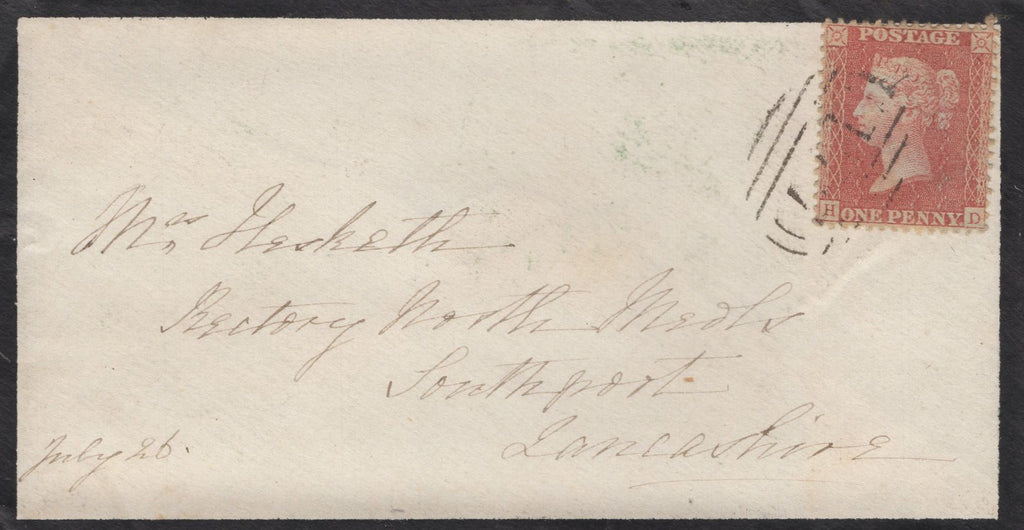 POSTAGE
H ONE PENNY D
Mrs Hesketh
Rectory North Meols
Southport
Lancashire
July 26.